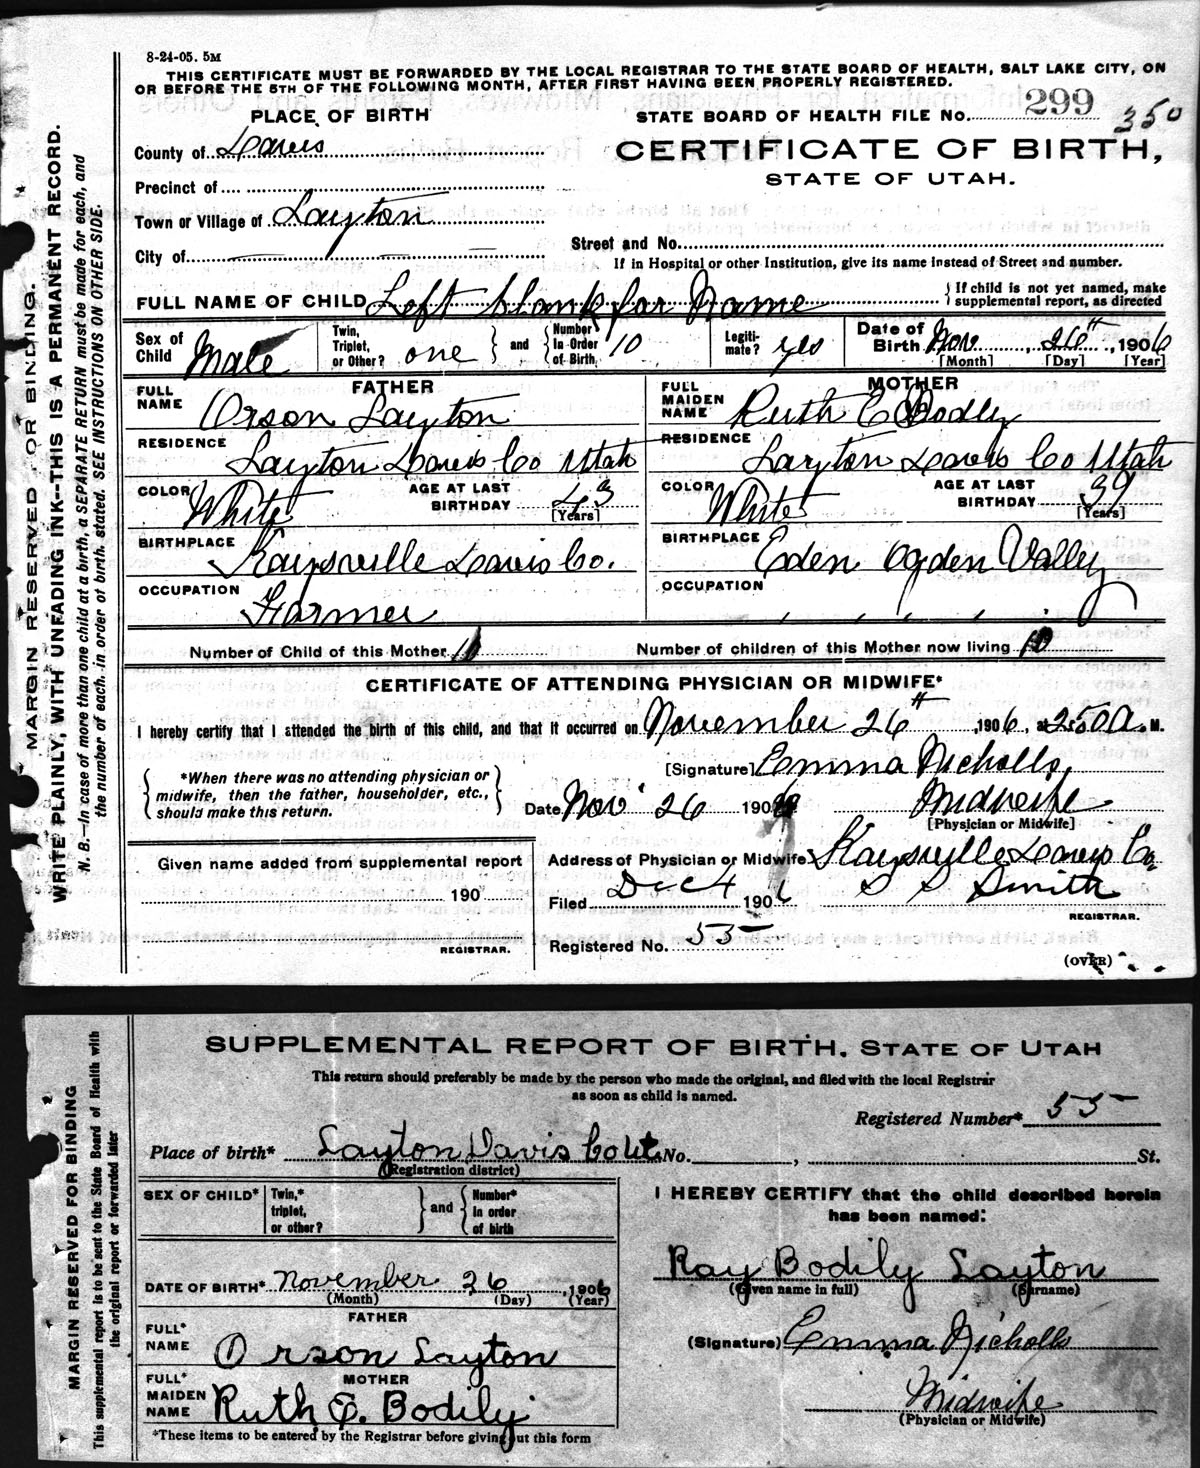 8-24-05. 5M
THIS CERTIFICATE MUST BE FORWARDED BY THE LOCAL REGISTRAR TO THE STATE BOARD OF HEALTH, SALT LAKE CITY, ON
OR BEFORE THE 5TH OF THE FOLLOWING MONTH, AFTER FIRST HAVING BEEN PROPERLY REGISTERED.
PLACE OF BIRTH
STATE BOARD OF HEALTH FILE No. 299 350
County of Davis
CERTIFICATE OF BIRTH,
STATE OF UTAH.
Precinct of
Town or Village of Layton
City of
Street and No.
If in Hospital or other Institution, give its name instead of Street and number.
FULL NAME OF CHILD Left blank for Name
If child is not yet named, make
supplemental report, as directed
Sex of Child Male
Twin, Triplet, or Other? one
and
Number In Order of Birth. 10
Legiti- mate? yes
Date of Birth Nov 26th, 1906
[Month] [Day] [Year]
FATHER
FULL NAME Orson Layton
RESIDENCE Layton Davis Co Utah
COLOR White
AGE AT LAST BIRTHDAY 43
[Years]
BIRTHPLACE Kaysville Davis Co.
OCCUPATION Farmer
MOTHER
FULL MAIDEN NAME Ruth E Bodly
RESIDENCE Layton Davis Co Utah
COLOR White
AGE AT LAST BIRTHDAY 39
[Years]
BIRTHPLACE Eden Ogden Valley
OCCUPATION
Number of Child of this Mother
Number of children of this Mother now living 10
CERTIFICATE OF ATTENDING PHYSICIAN OR MIDWIFE*
I hereby certify that I attended the birth of this child, and that it occurred on November 26th, 1906, at 2.50 A. M.
*When there was no attending physician or
midwife, then the father, householder, etc.,
should make this return.
[Signature] Emma Nicholls,
Date Nov 26 190
Midwife
[Physician or Midwife]
Given name added from supplemental report
190
REGISTRAR.
Address of Physician or Midwife Kaysville Davis Co.
Filed Dec 4 1906
S S Smith
REGISTRAR.
Registered No. 55
(OVER)
MARGIN RESERVED FOR BINDING.
WRITE PLAINLY, WITH UNFADING INK--THIS IS A PERMANENT RECORD.
N. B.—In case of more than one child at a birth, a SEPARATE RETURN must be made for each, and
the number of each, in order of birth, stated. SEE INSTRUCTIONS ON OTHER SIDE.
SUPPLEMENTAL REPORT OF BIRTH. STATE OF UTAH
This return should preferably be made by the person who made the original, and filed with the local Registrar
as soon as child is named.
Registered Number* 55
Place of birth* Layton Davis Co Ut. No. , St.
(Registration district)
SEX OF CHILD*
Twin,* triplet, or other?
and
Number* In order of birth
I HEREBY CERTIFY that the child described herein
has been named:
Ray Bodily Layton
(Given name in full) (Surname)
DATE OF BIRTH* November 26, 1906
(Month) (Day) (Year)
FATHER
FULL* NAME Orson Layton
MOTHER
FULL* MAIDEN NAME Ruth E. Bodily
(Signature) Emma Nicholls
Midwife
(Physician or Midwife)
*These items to be entered by the Registrar before giving out this form
MARGIN RESERVED FOR BINDING
This supplemental report is to be sent to the State Board of Health with
the original report or forwarded later